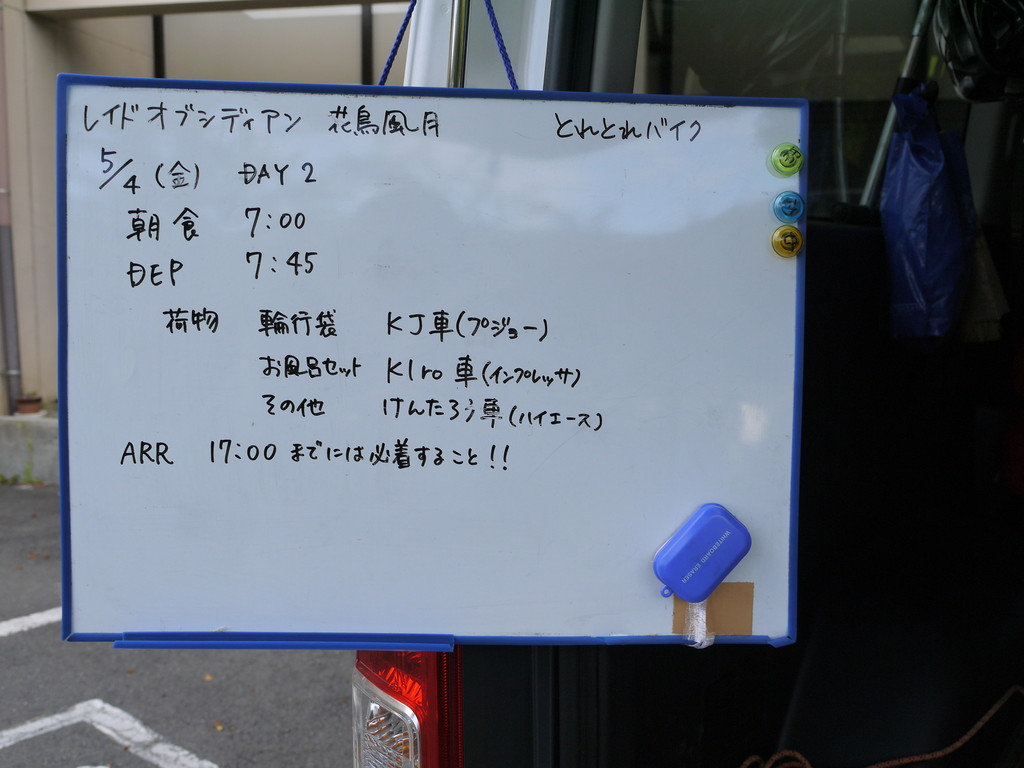 レイドオブシディアン 花鳥風月 とれとれバイク
5/4 (金) DAY 2
朝食 7:00
DEP 7:45
荷物 輪行袋 KJ車(プジョー)
お風呂セット KIro車(インプレッサ)
その他 けんたろう車(ハイエース)
ARR 17:00までには必着すること!!
WHITEBOARD ERASER